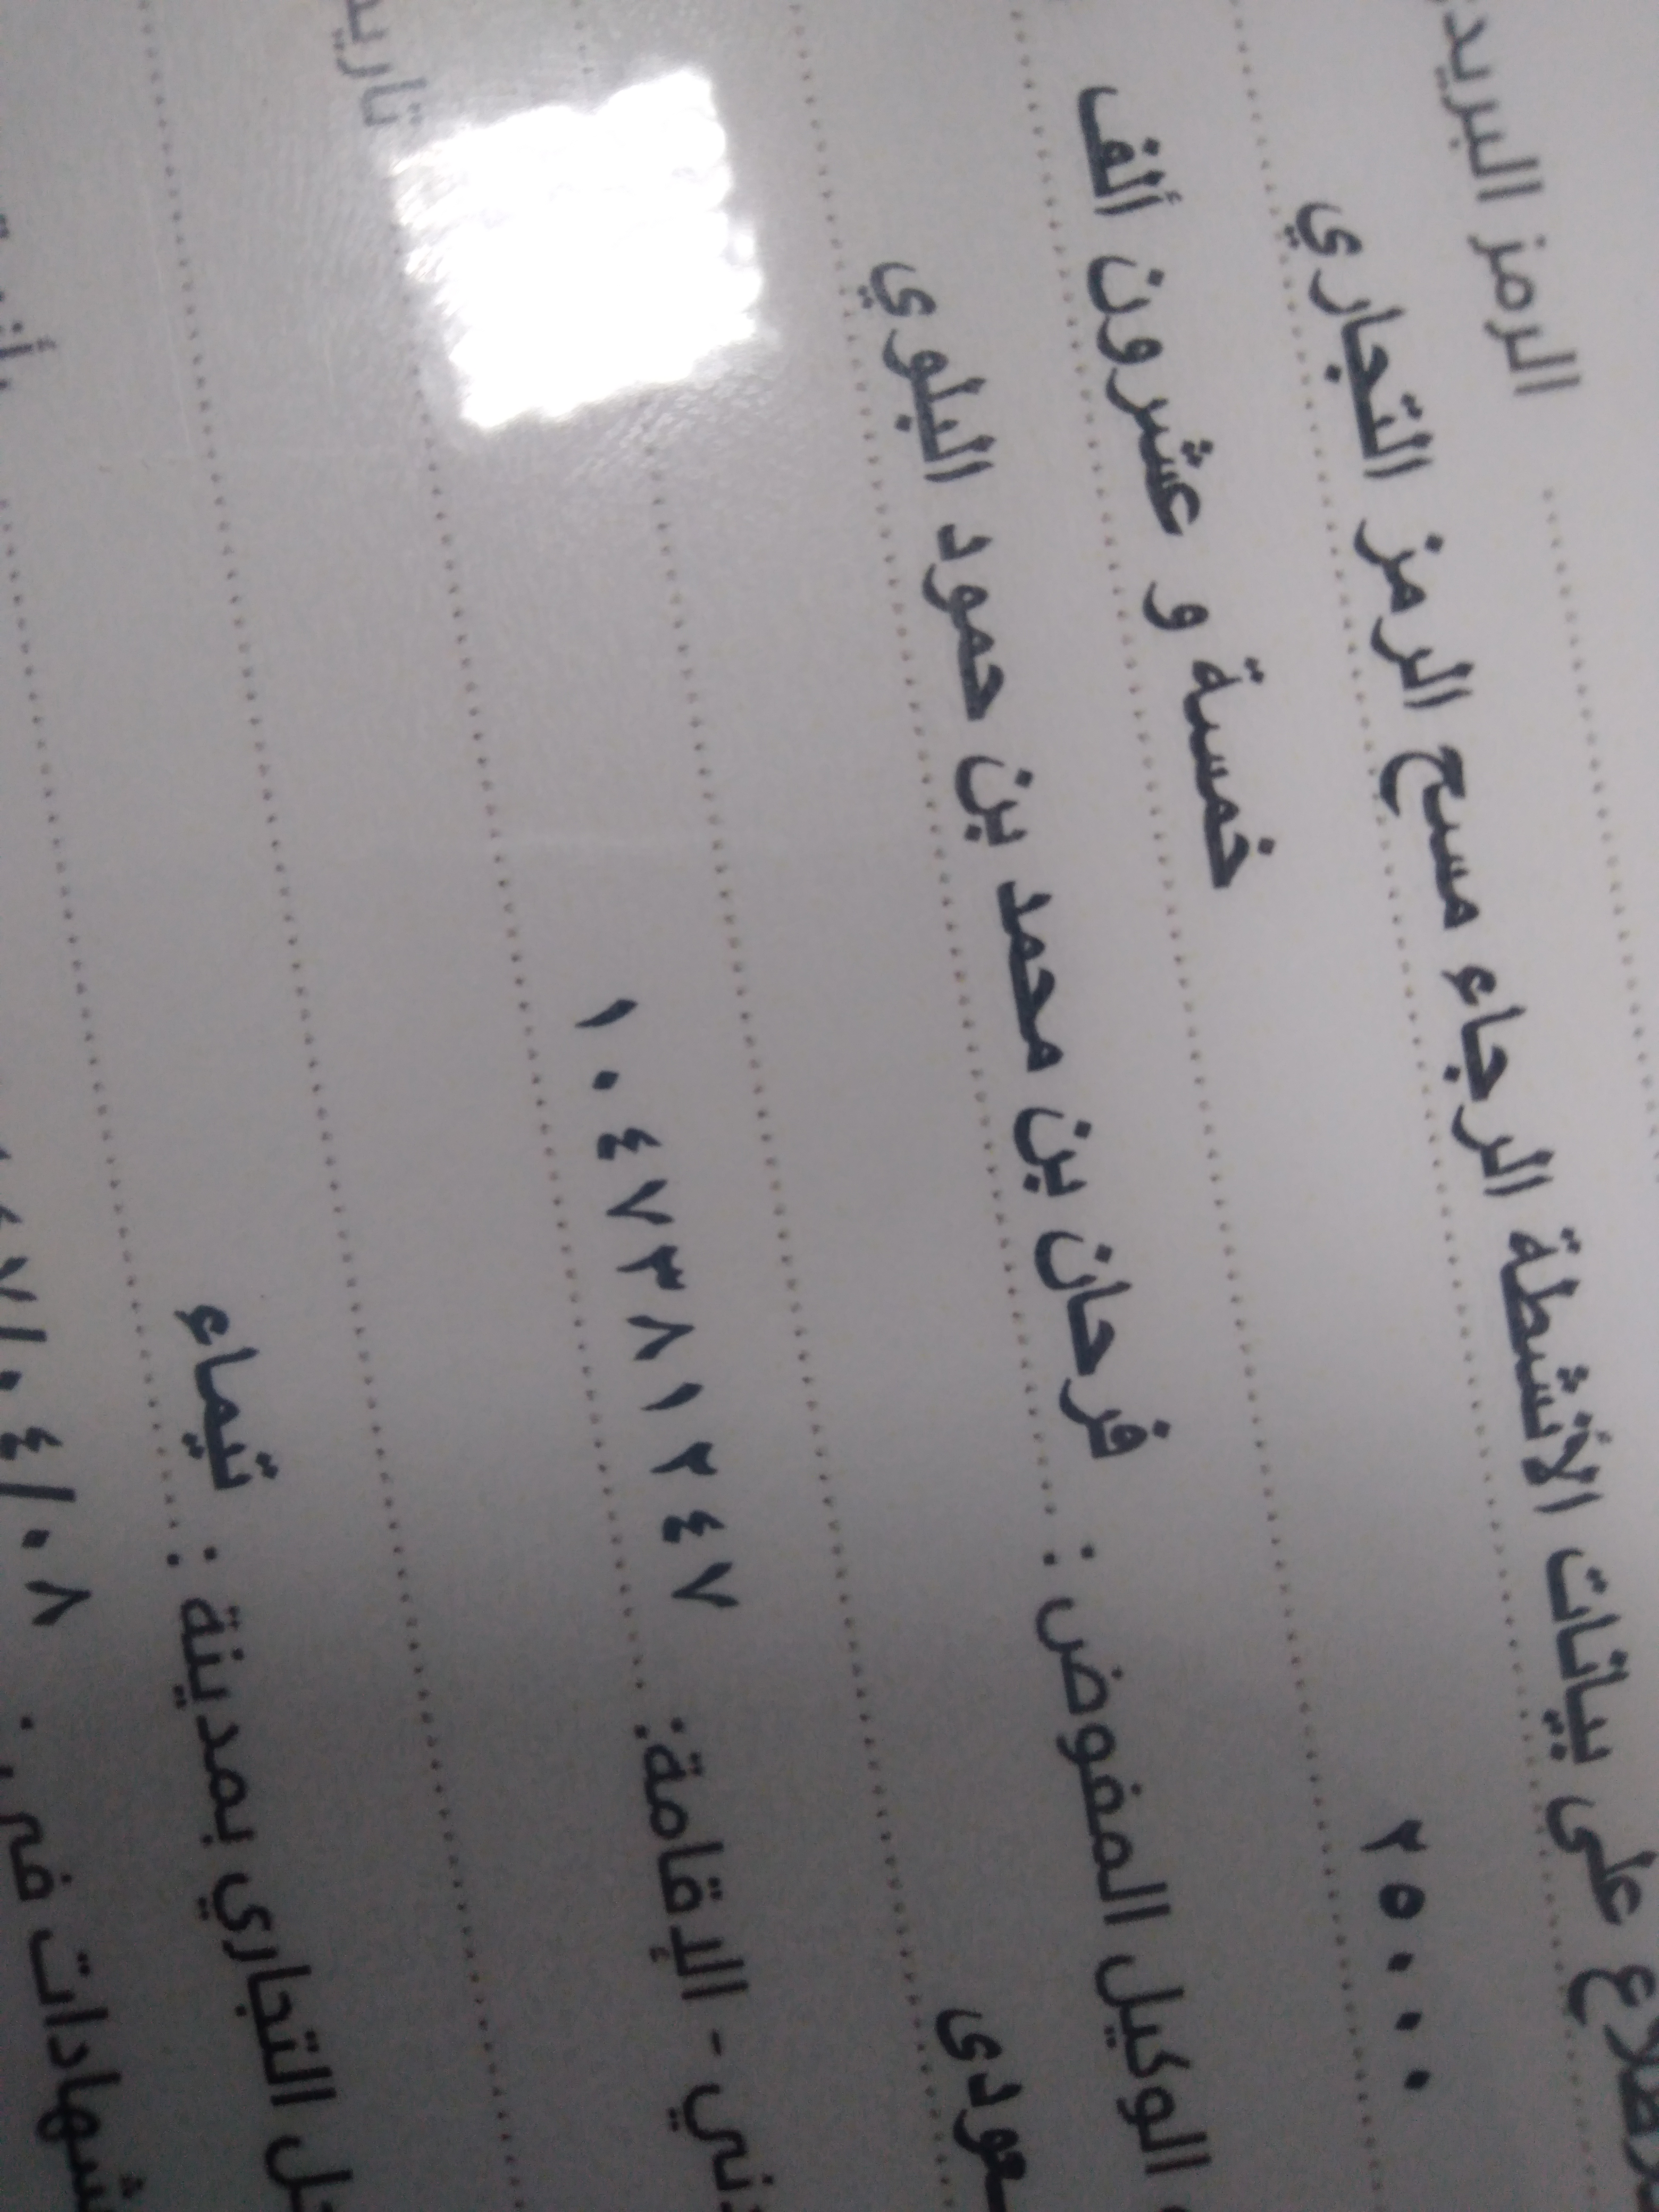 الرمز البريد
طلاع على بيانات الأنشطة الرجاء مسح الرمز التجاري
٢٥٠٠٠ خمسة و عشرون ألف
الوكيل المفوض : فرحان بن محمد بن حمود البلوي
عودى
ني - الإقامة: ١٠٤٧٣٨١٢٤٧ تاري
ل التجاري بمدينة : تيماء
شهادات في : ٧/٠٤/٠٨